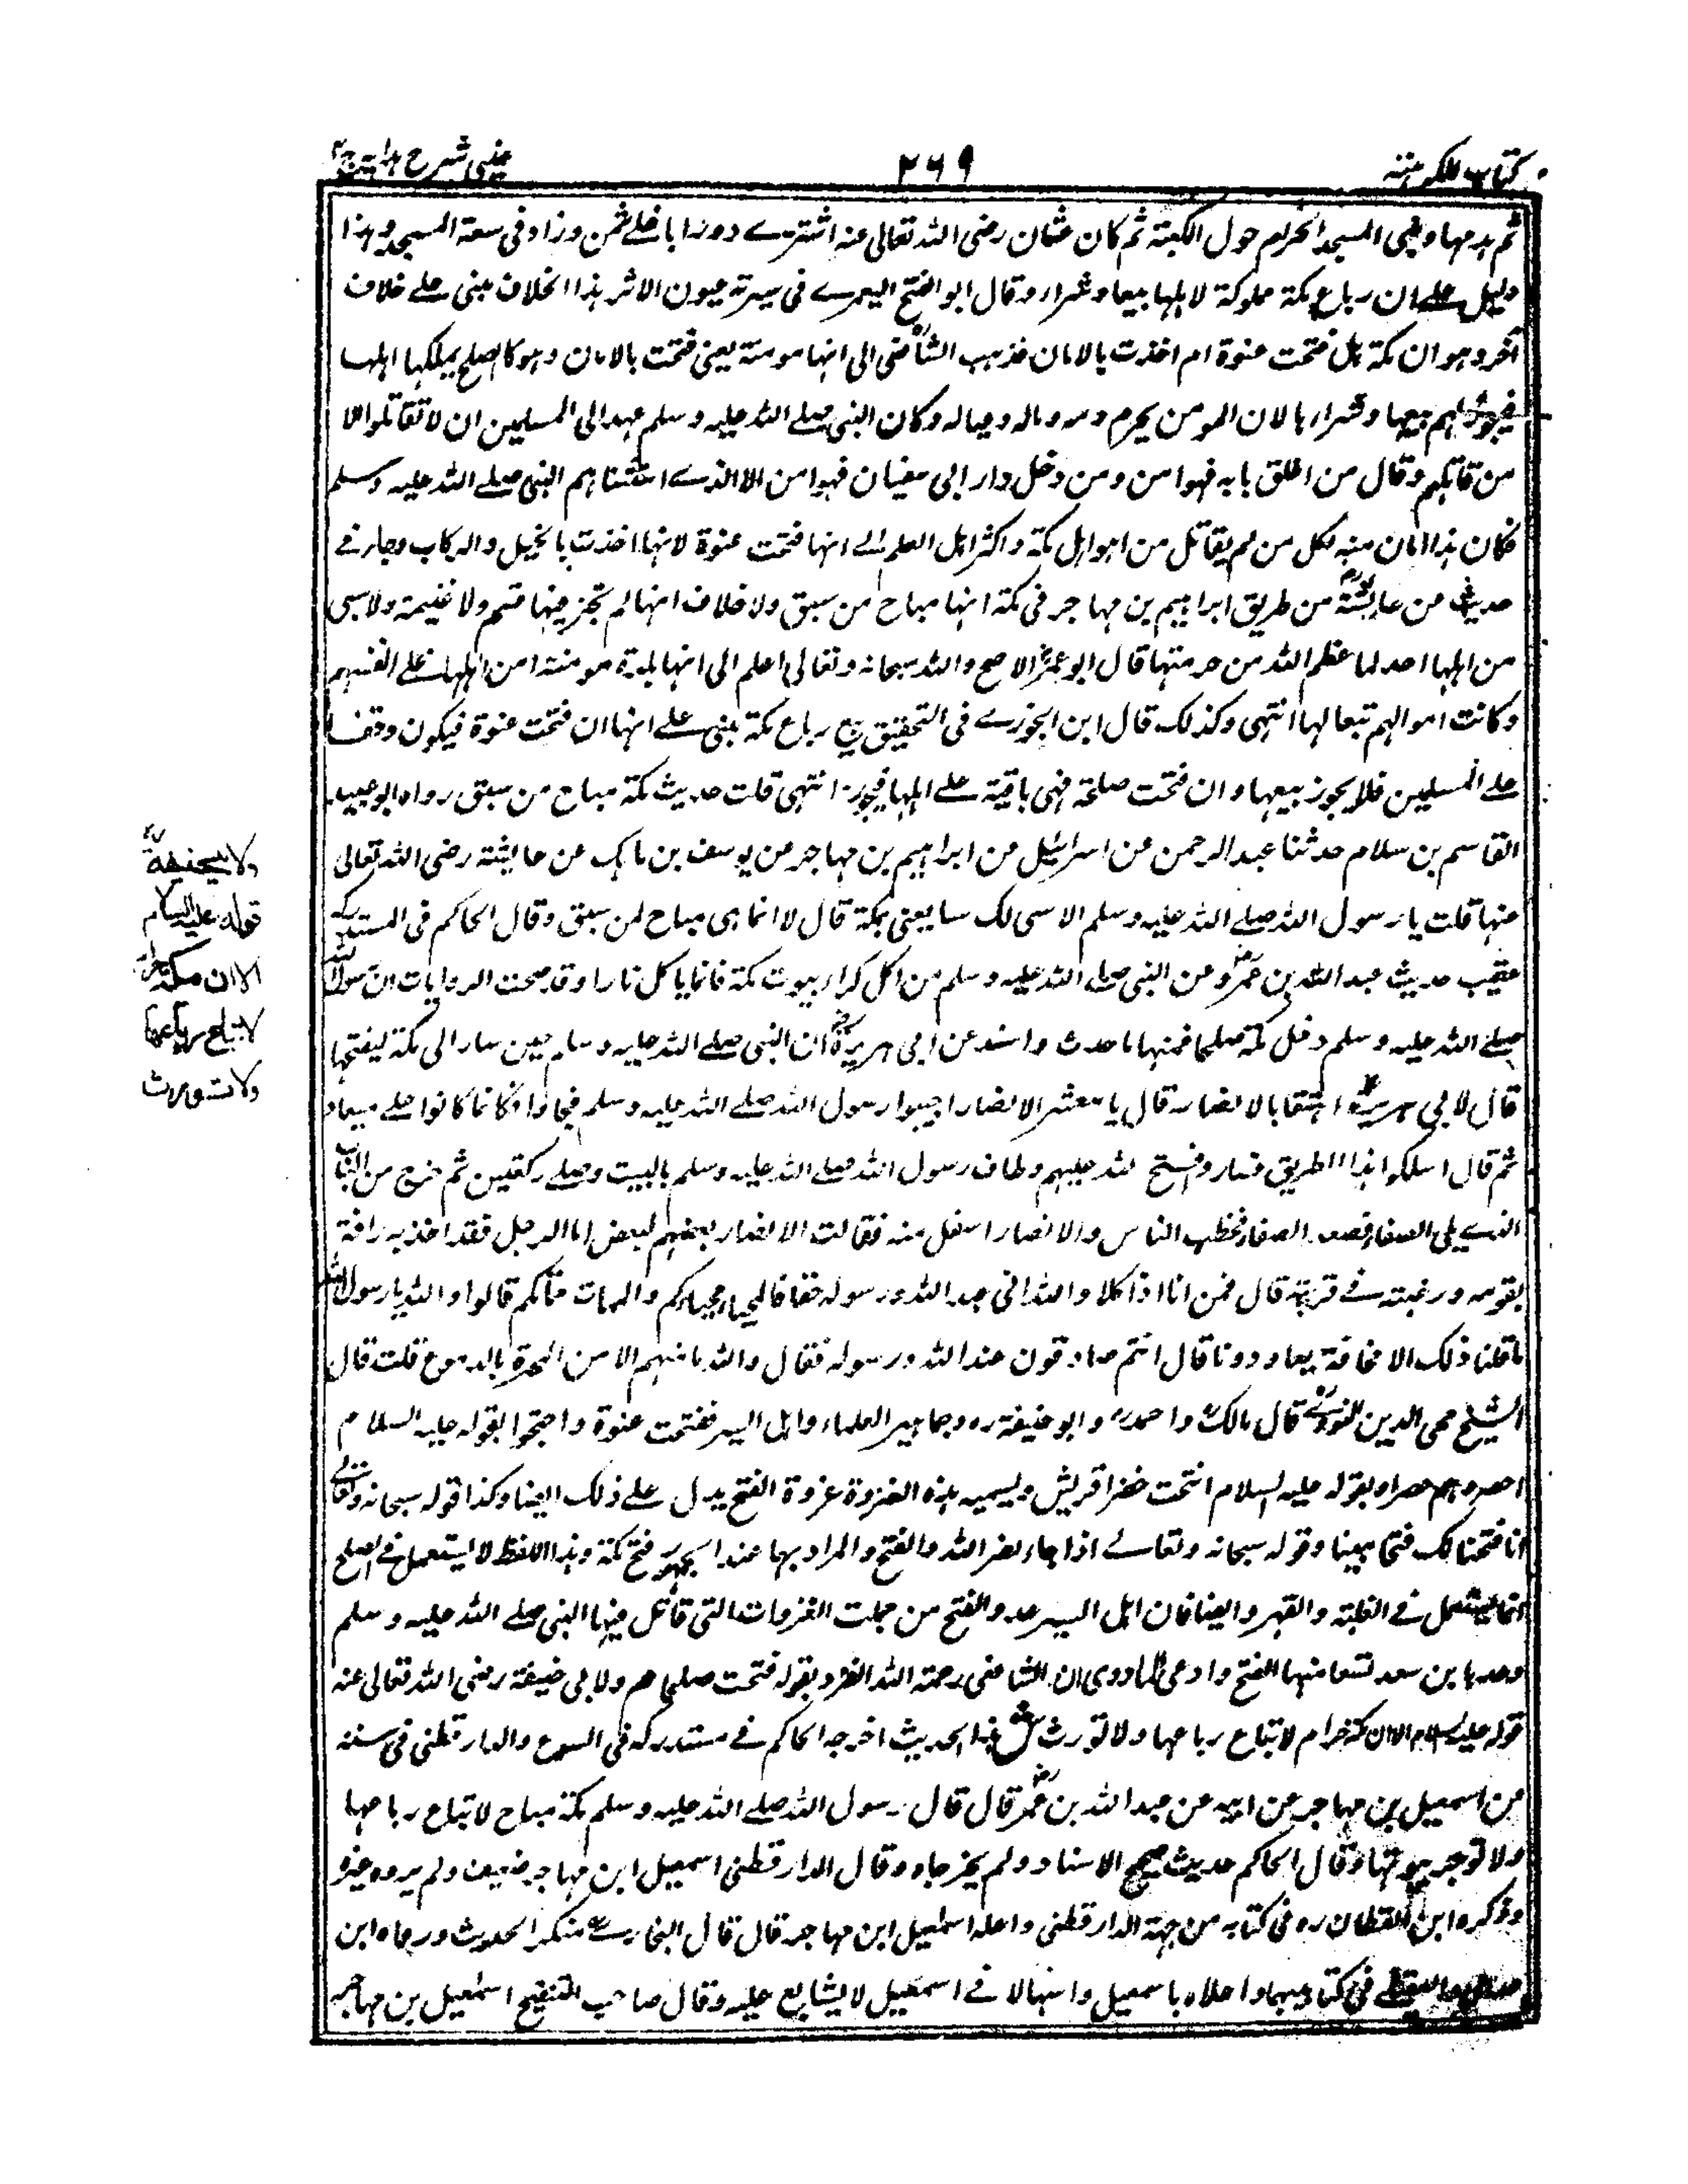 كتاب الكراهية
٢٦٩
عيني شرح هداية ج٤
ثم هدمها وبنى المسجد الحرام حول الكعبة ثم كان عثمان رضى الله تعالى عنه اشترے دورا باغلے ثمن وزاد فى سعة المسجد وهذا
دليل علے ان رباع مكة مملوكة لاهلها بيعا وشراء وقال ابو الفتح اليعمرے فى سيرته عيون الاثر هذا الخلاف مبنى علے خلاف
آخر وهو ان مكة هل فتحت عنوة ام اخذت بالامان فذهب الشافعى الى انها مومنة يعنى فتحت بالامان وهو كالصلح يملكها اهلها
فيجوز لهم بيعها وشراءها لان المومن يحرم دمه وماله وعياله وكان النبى صلے الله عليه وسلم عهد الى المسلمين ان لا تقاتلوا الا
من قاتلكم وقال من اغلق بابه فهو امن ومن دخل دار ابى سفيان فهو امن الا الذے استثناهم النبى صلے الله عليه وسلم
فكان هذا امان منه لكل من لم يقاتل من اهل مكة واكثر اهل العلم الے انها فتحت عنوة لانها اخذت بالخيل والركاب وجاء فے
حديث عن عايشة من طريق ابراهيم بن مهاجر فى مكة انها مباح من سبق ولا خلاف انها لم تجز فيها قسم ولا غنيمة ولا سبى
من اهلها احد لما عظم الله من حرمتها قال ابو عمر الاصح والله سبحانه وتعالى اعلم الى انها بلدة مومنة امن اهلها علے انفسهم
وكانت اموالهم تبعا لها انتهى وكذلك قال ابن الجوزے فى التحقيق بيع رباع مكة مبنى علے انها ان فتحت عنوة فيكون وقفا
علے المسلمين فلا يجوز بيعها وان فتحت صلحة فهى باقية علے اهلها فيجوز انتهى قلت حديث مكة مباح من سبق رواه ابو عبيد
القاسم بن سلام حدثنا عبد الرحمن عن اسرائيل عن ابراهيم بن مهاجر عن يوسف بن ماهك عن عايشة رضى الله تعالى
عنها قلت يا رسول الله صلے الله عليه وسلم الا يعنى بمكة قال لا انما هى مباح لمن سبق وقال الحاكم فى المستدرك
عقيب حديث عبد الله بن عمرو عن النبى صلے الله عليه وسلم من اكل كراء بيوت مكة فانما ياكل نارا وقد صحت الروايات ان رسول الله
صلے الله عليه وسلم دخل مكة صلحا فمنها ما حدث واسند عن ابى هريرة ان النبى صلے الله عليه وسلم حين سار الى مكة ليفتحها
قال لابى هريرة اهتف بالانصار قال يا معشر الانصار اجيبوا رسول الله صلے الله عليه وسلم فجاؤا فكانما كانوا على ميعاد
ثم قال اسلكوا هذا الطريق فسار وفتح الله عليهم وطاف رسول الله صلے الله عليه وسلم بالبيت وصلے ركعتين ثم خرج من الباب
الذے يلى الصفا فصعد الصفا فخطب الناس والانصار اسفل منه فقالت الانصار بعضهم لبعض اما الرجل فقد اخذ به رافة
بقومه ورغبته فے قريته قال فمن انا اذا كلا والله انى عبد الله ورسوله حقا فالمحياء محياكم والممات مماتكم قالوا والله يا رسول الله
ما قلنا ذلك الا مخافة يعاودونا قال انتم صادقون عند الله ورسوله فقال والله ما منهم الا من بالدموع قلت قال
الشيخ محى الدين النووى قال مالك واحمد وابو حنيفة ره وجماهير العلماء واهل السير فتحت عنوة واحتجوا بقوله عليه السلام
احصروهم حصرا وبقوله عليه السلام خضراء قريش وليسميه هذه الغزوة غزوة الفتح يدل علے ذلك ايضا وكذا قوله سبحانه وتعالے
انا فتحنا لك فتحا مبينا وقوله سبحانه وتعالے اذا جاء نصر الله والفتح والمراد بها عند الجمهور فتح مكة وهذا اللفظ لا يستعمل فے الصلح
انما يستعمل فے الغلبة والقهر وايضا فان اهل السير عدو الفتح من جملت الغزوات التى قاتل فيها النبى صلے الله عليه وسلم
وعدها بن سعد تسعا منها الفتح وادعى الماوردى ان الشافعى رحمة الله انفرد بقوله فتحت صلحا هم ولابى حنيفة رضى الله تعالى عنه
قوله عليه السلام الا ان مكة حرام لا تباع رباعها ولا تورث ش هذا الحديث اخرجه الحاكم فے مستدركه فى البيوع والدارقطنى فى سننه
عن اسمعيل بن مهاجر عن ابيه عن عبد الله بن عمرو قال قال رسول الله صلے الله عليه وسلم مكة مباح لا تباع رباعها
ولا توجر بيوتها وقال الحاكم حديث صحيح الاسناد ولم يخرجاه وقال الدارقطنى اسمعيل ابن مهاجر ضعيف ولم يروه غيره
وذكره ابن القطان ره فى كتابه من جهة الدارقطنى واعله اسمعيل ابن مهاجر قال قال البخارے منكر الحديث ورواه ابن
عدى والعقيلے فى كتابيهما واعلاه باسمعيل وانهالا فے اسمعيل لا يتابع عليه وقال صاحب التنقيح اسمعيل بن مهاجر
ولابيحنيفة
قوله عليه السلام
الا ان مكة حرام
لا تباع رباعها
ولا تورث